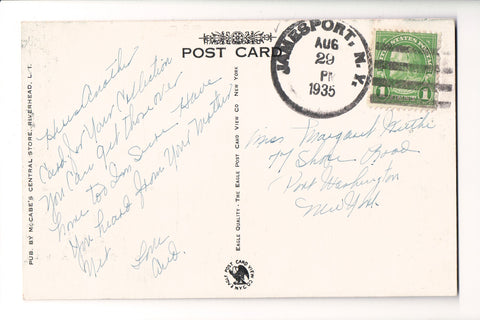 POST CARD
JAMESPORT, N.Y.
AUG
29
PM
1935
UNITED STATES POSTAGE
1
Here's another
Card for Your Collection
You Can get those over
home too I'm Sure. Have
You heard from Your Mother
Yet. Love
Miss Margaret
77 Shore Road
Port Washington
New York
PUB. BY McCABE'S CENTRAL STORE, RIVERHEAD, L. I.
EAGLE QUALITY - THE EAGLE POST CARD VIEW CO. NEW YORK
EAGLE POST CARD VIEW
N.Y.C.